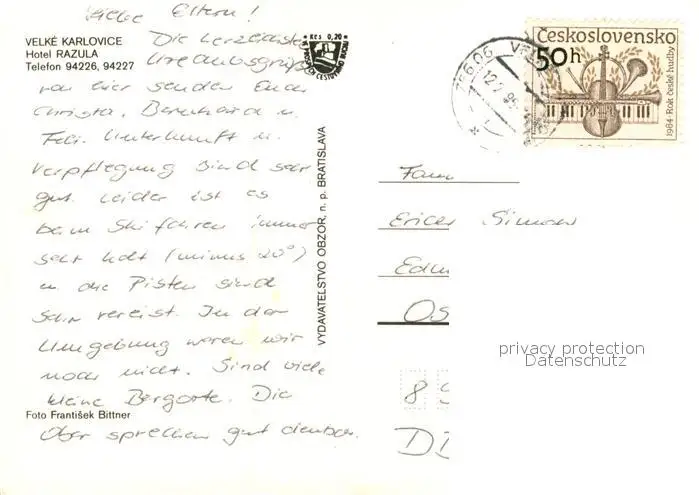 Liebe Eltern!
VELKÉ KARLOVICE
Hotel RAZULA
Telefon 94226, 94227
Die herzlichsten
Urlaubsgrüße
von hier senden Euch
Christa, Bernhard u.
Feli. Unterkunft u.
Verpflegung sind sehr
gut. Leider ist es
beim Skifahren immer
sehr kalt (minus 20°)
u. die Pisten sind
sehr vereist. In der
Umgebung waren wir
noch nicht. Sind viele
kleine Bergorte. Die
Foto František Bittner
Ober sprechen gut deutsch.
Kčs 0,20
VYDAVATEĽSTVO OBZOR, n. p. BRATISLAVA
756 06
Československo
50h
1984 · Rok české hudby
Fam
Erich Simon
Edm
Os
8
privacy protection
Datenschutz